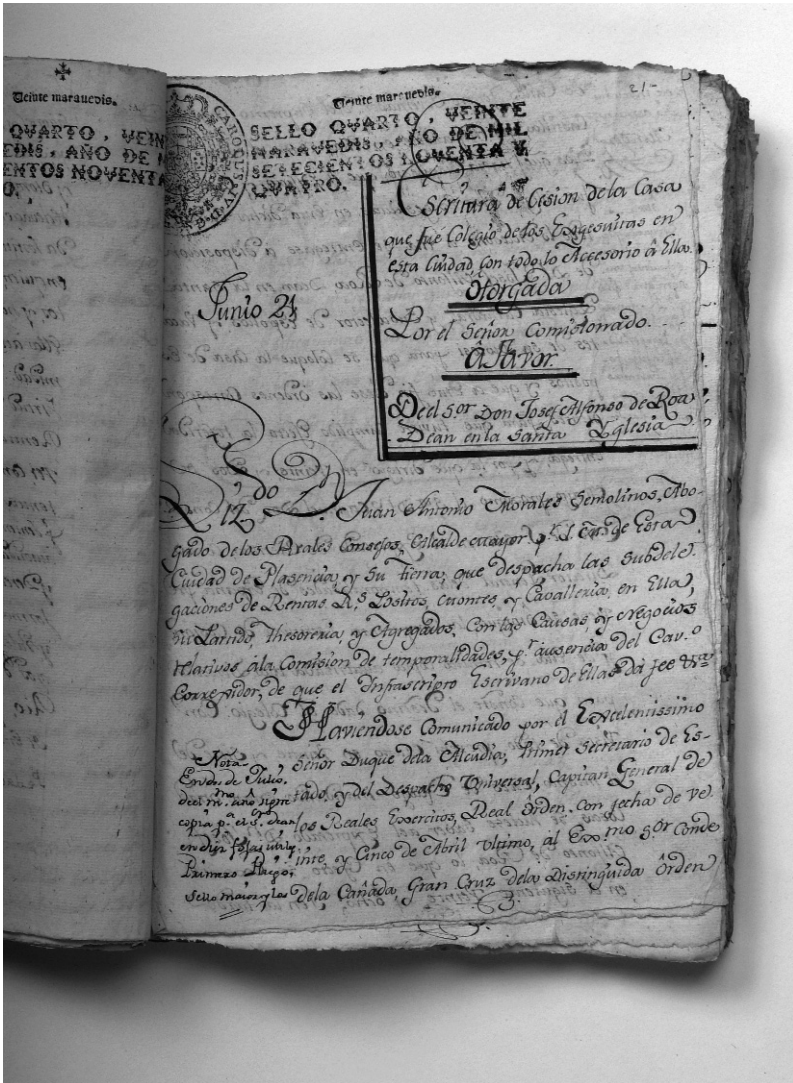 Veinte maravedis.
QVARTO, VEIN
EDIS, AÑO DE M
ENTOS NOVENTA
O.
21-
Veinte maravedis.
CAROLUS
SELLO QVARTO, VEINTE
MARAVEDIS, AÑO DE MIL
SETECIENTOS NOVENTA Y
QVATRO.
Escritura de Cesion de la Casa
que fué Colegio de los Exgesuitas en
esta Ciudad con todo lo Accesorio â Ella.
Otorgada
Por el Señor Comisionado.
â Favor.
De el Sor. Don Josef Alfonso de Roa
Dean en la Santa Yglesia
Junio 21
Lizdo D. Juan Antonio Morales Semolinos, Abo-
gado de los Rrales Consejos, Alcalde mayor pr. S. M. de Esta
Ciudad de Plasencia, y su tierra, que despacha las subdele-
gaciones de Rentas Rs. Postros, montes y Cavalleria, en Ella,
su Partido, Thesoreria, y Agregados, con las Causas, y Negocios
relativos á la Comision de temporalidades, pr. ausencia del Cavo.
Corregidor, de que el Infrascripto Escrivano de Ellas dá fee &ra
Haviendose Comunicado por el Excelentissimo
Señor Duque dela Alcudia, Primer Secretario de Es-
tado, y del Despacho Universal, Capitan General de
los Reales Exercitos, Real Orden, con fecha de ve-
inte, y Cinco de Abril ultimo, al Exmo Sor Conde
dela Cañada, Gran Cruz dela Distinguida Orden
Nota
En dos de Julio,
deel mmo. año
copia pa. el Sr. Dean
en diez fojas utiles
Primero Pliego,
sello maior y los